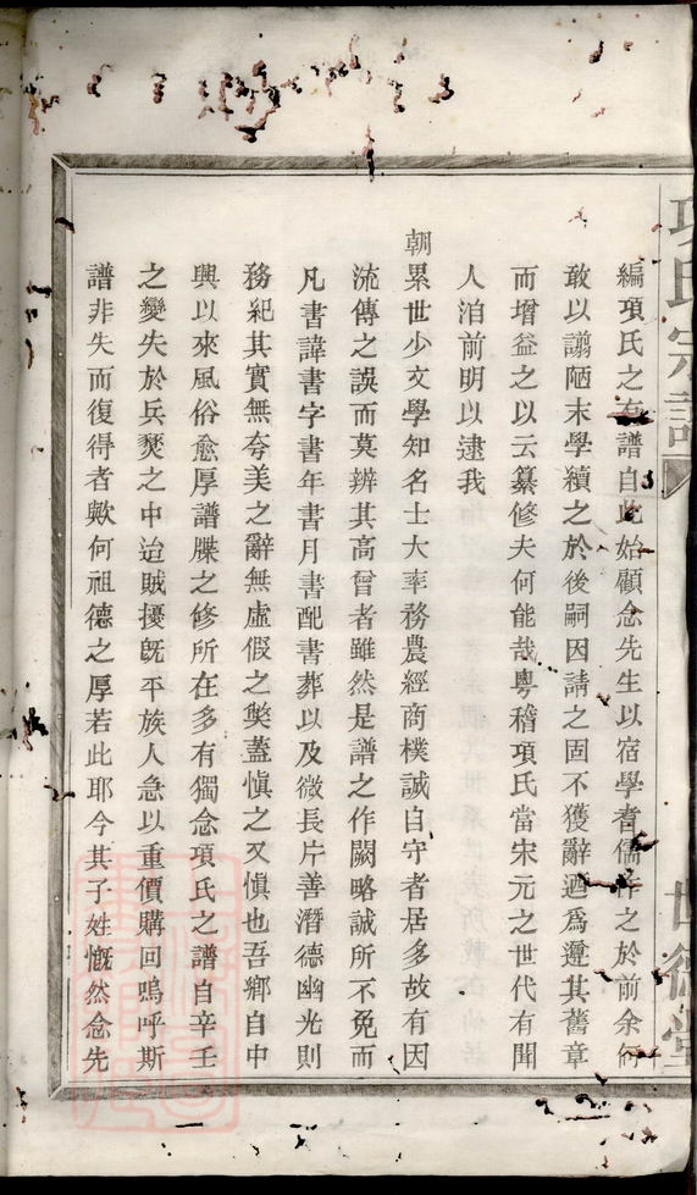 項氏宗譜
世德堂
編項氏之有譜自此始顧念先生以宿學耆儒作之於前余何
敢以謭陋末學續之於後嗣因請之固不獲辭迺爲遵其舊章
而增益之以云纂修夫何能哉粵稽項氏當宋元之世代有聞
人洎前明以逮我
朝累世少文學知名士大率務農經商樸誠自守者居多故有因
流傳之誤而莫辨其高曾者雖然是譜之作闕略誠所不免而
凡書諱書字書年書月書配書葬以及微長片善潛德幽光則
務紀其實無夸美之辭無虛假之獘蓋愼之又愼也吾鄉自中
興以來風俗愈厚譜牒之修所在多有獨念項氏之譜自辛壬
之變失於兵燹之中迨賊擾旣平族人急以重價購回嗚呼斯
譜非失而復得者歟何祖德之厚若此耶今其子姓慨然念先